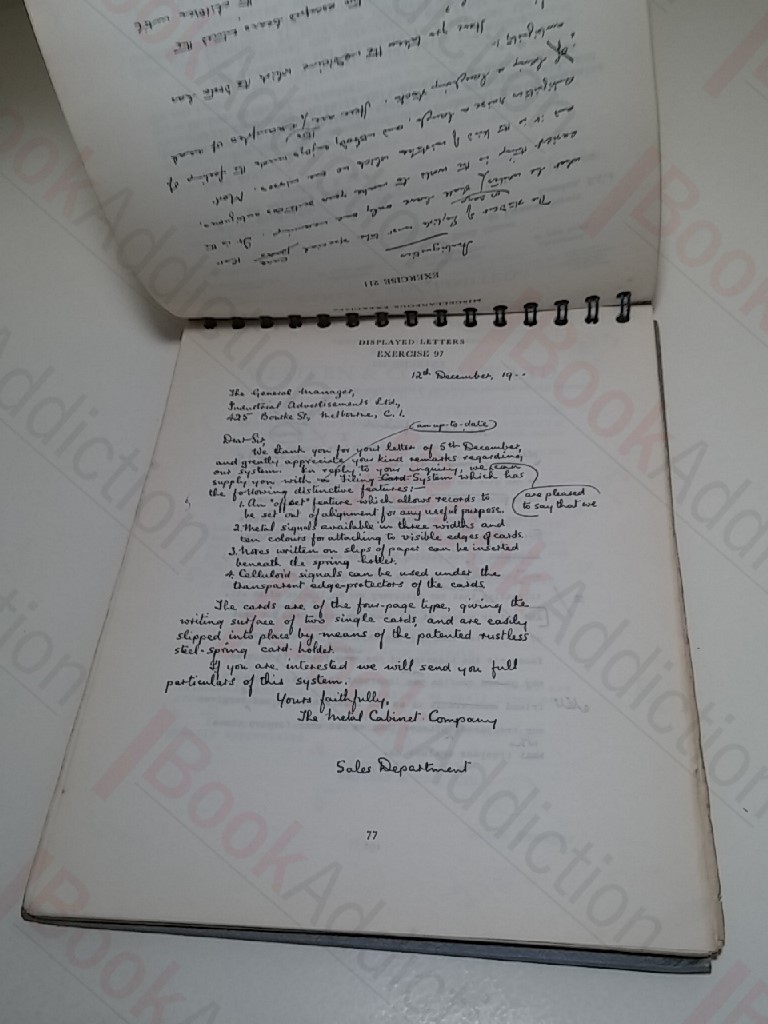 DISPLAYED LETTERS
EXERCISE 97
12th December, 19--
The General Manager,
Industrial Advertisements Ltd.,
425 Bourke St., Melbourne, C.1.
an up-to-date
Dear Sir,
We thank you for your letter of 5th December,
and greatly appreciate your kind remarks regarding
our system. In reply to your enquiry, we can
supply you with a Filing Card System which has
the following distinctive features:-
are pleased
to say that we
1. An "offset" feature which allows records to
be set out of alignment for any useful purpose.
2. Metal signals available in three widths and
ten colours for attaching to visible edges of cards.
3. Notes written on slips of paper can be inserted
beneath the spring holder.
4. Celluloid signals can be used under the
transparent edge-protectors of the cards.
The cards are of the four-page type, giving the
writing surface of two single cards, and are easily
slipped into place by means of the patented rustless
steel-spring card-holder.
If you are interested we will send you full
particulars of this system.
Yours faithfully,
The Metal Cabinet Company
Sales Department
77
MISCELLANEOUS EXERCISES
EXERCISE 211
Ambiguities
The student of English must take special care that
what he writes shall have only one meaning. It is the
easiest thing in the world to make your written ambiguous,
and it is the kind of mistake which no one misses. Most
ambiguities raise a laugh, and nobody enjoys much the feeling of
being a laughing stock. Here are examples of real
ambiguity:
BookAddiction